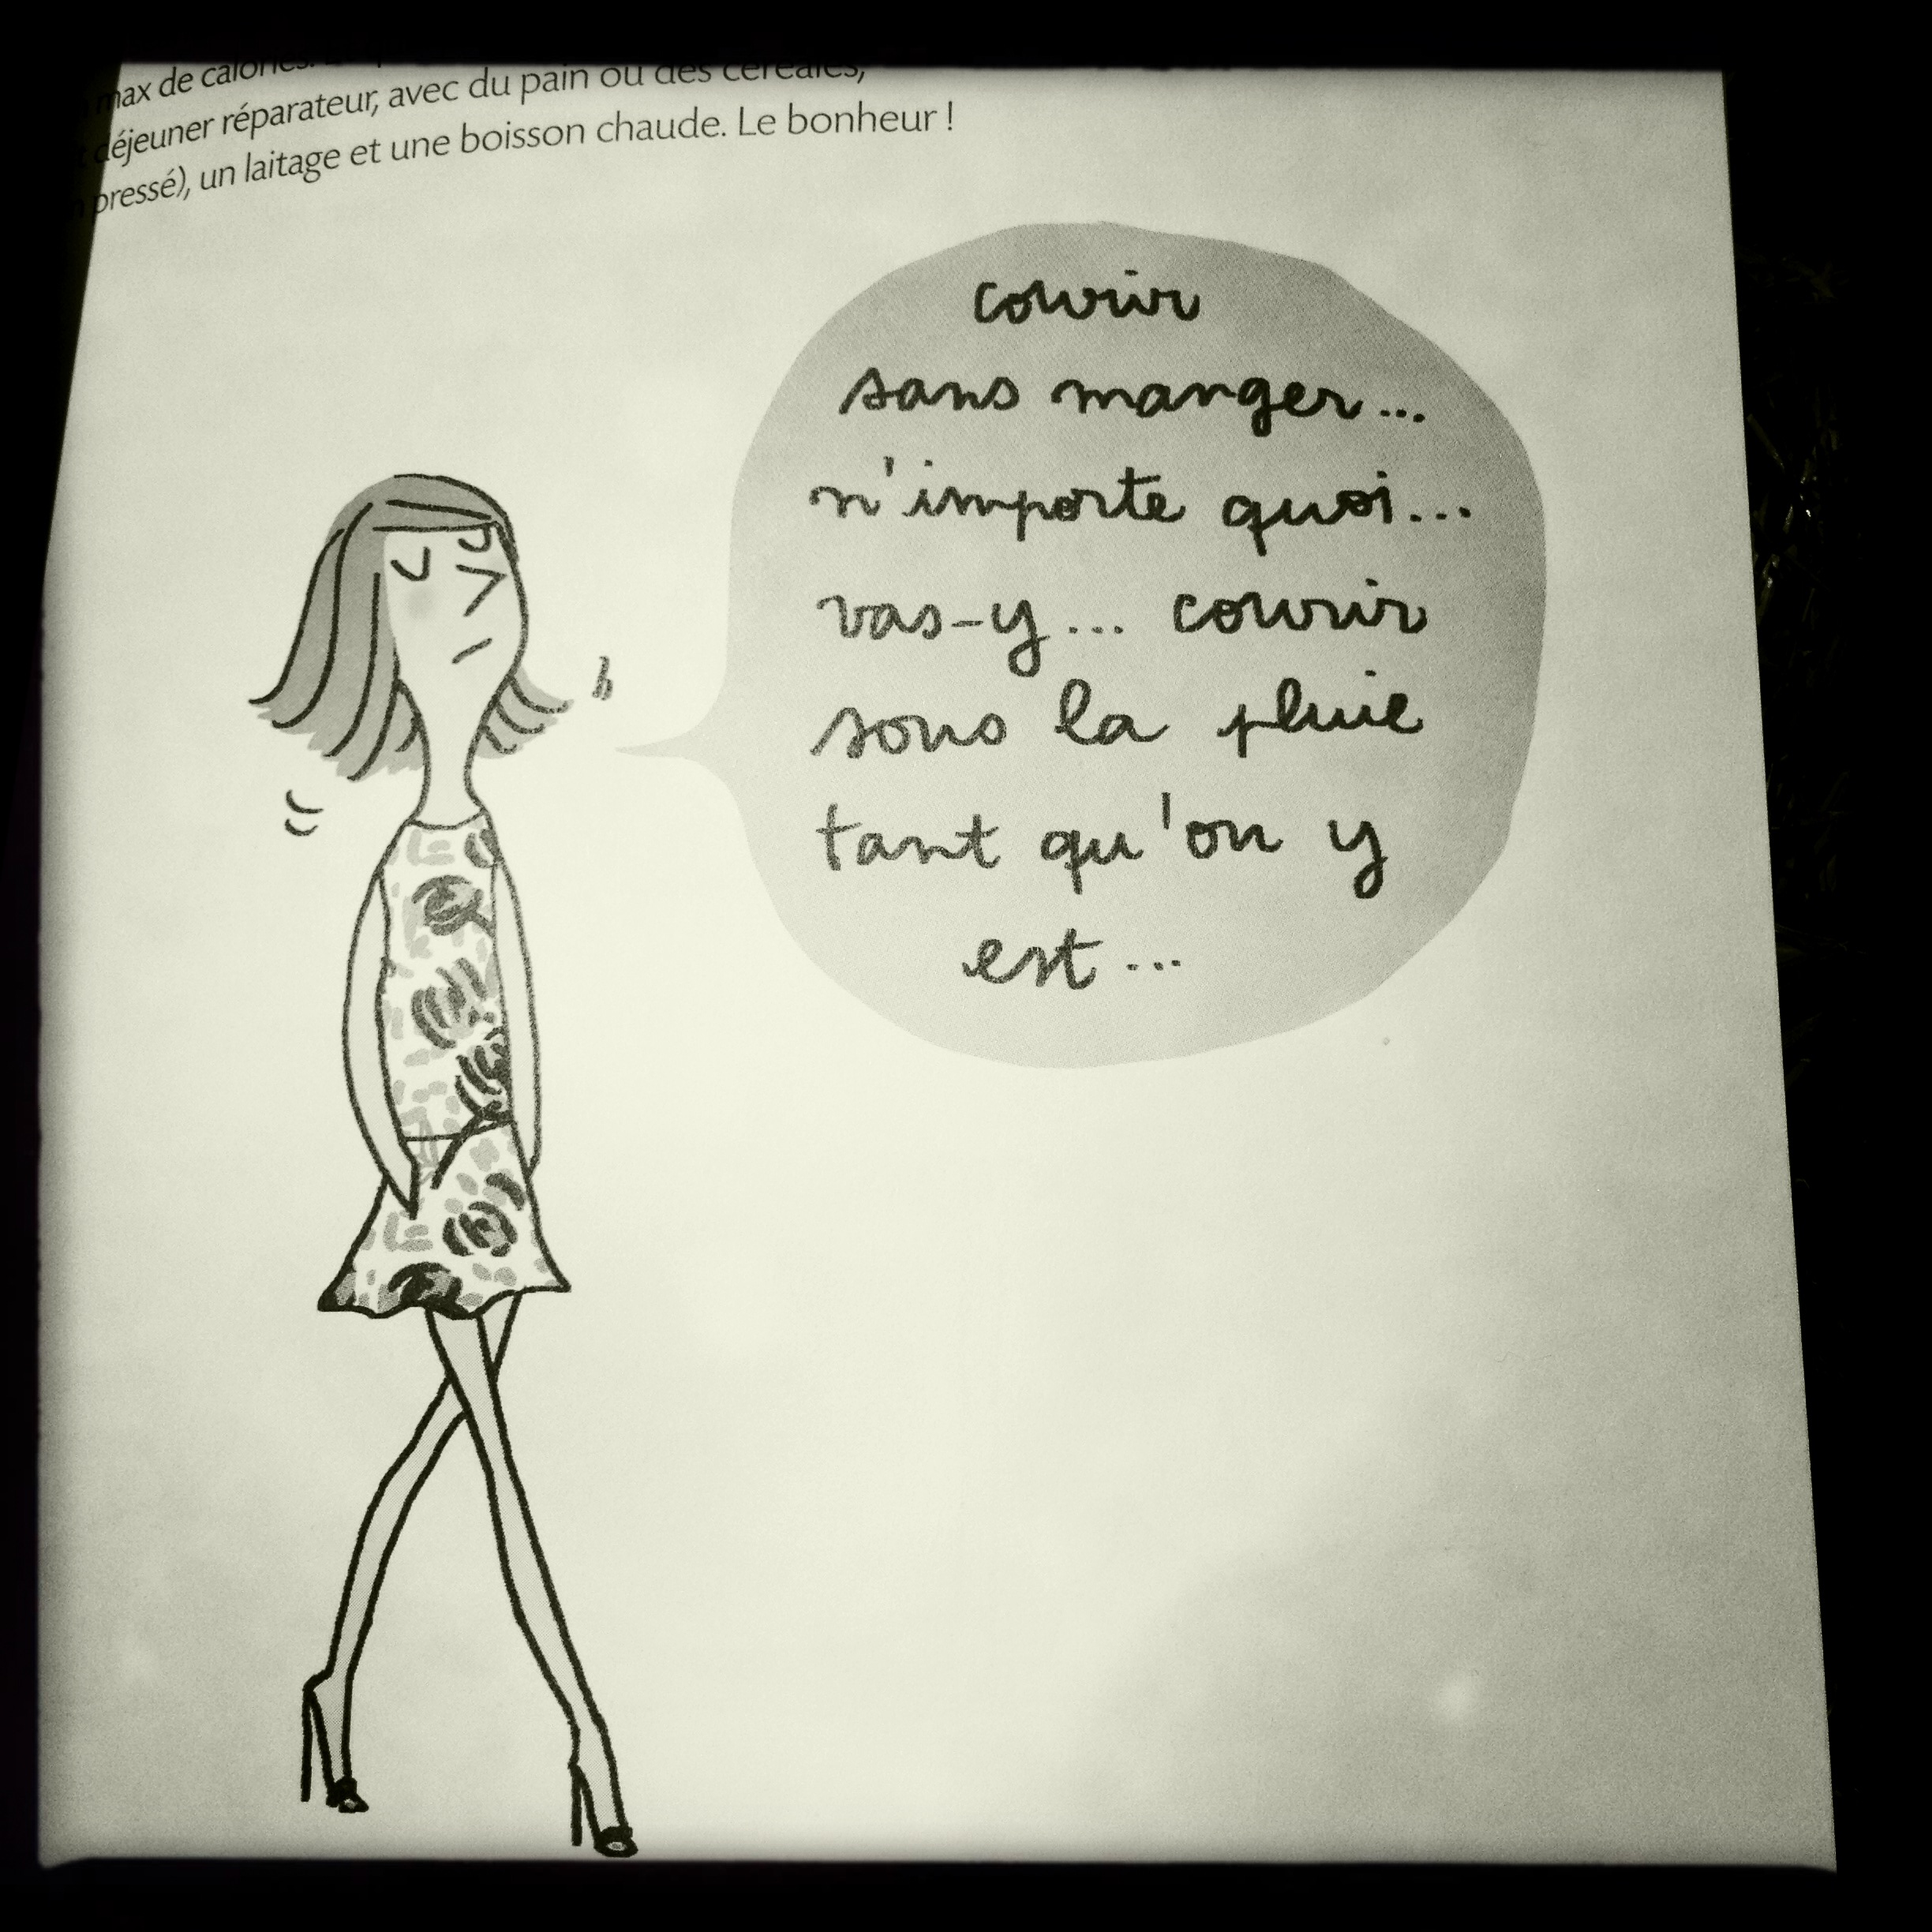 max de calories.
déjeuner réparateur, avec du pain ou des céréales,
pressé), un laitage et une boisson chaude. Le bonheur !
courir
sans manger...
n'importe quoi...
vas-y... courir
sous la pluie
tant qu'on y
est...